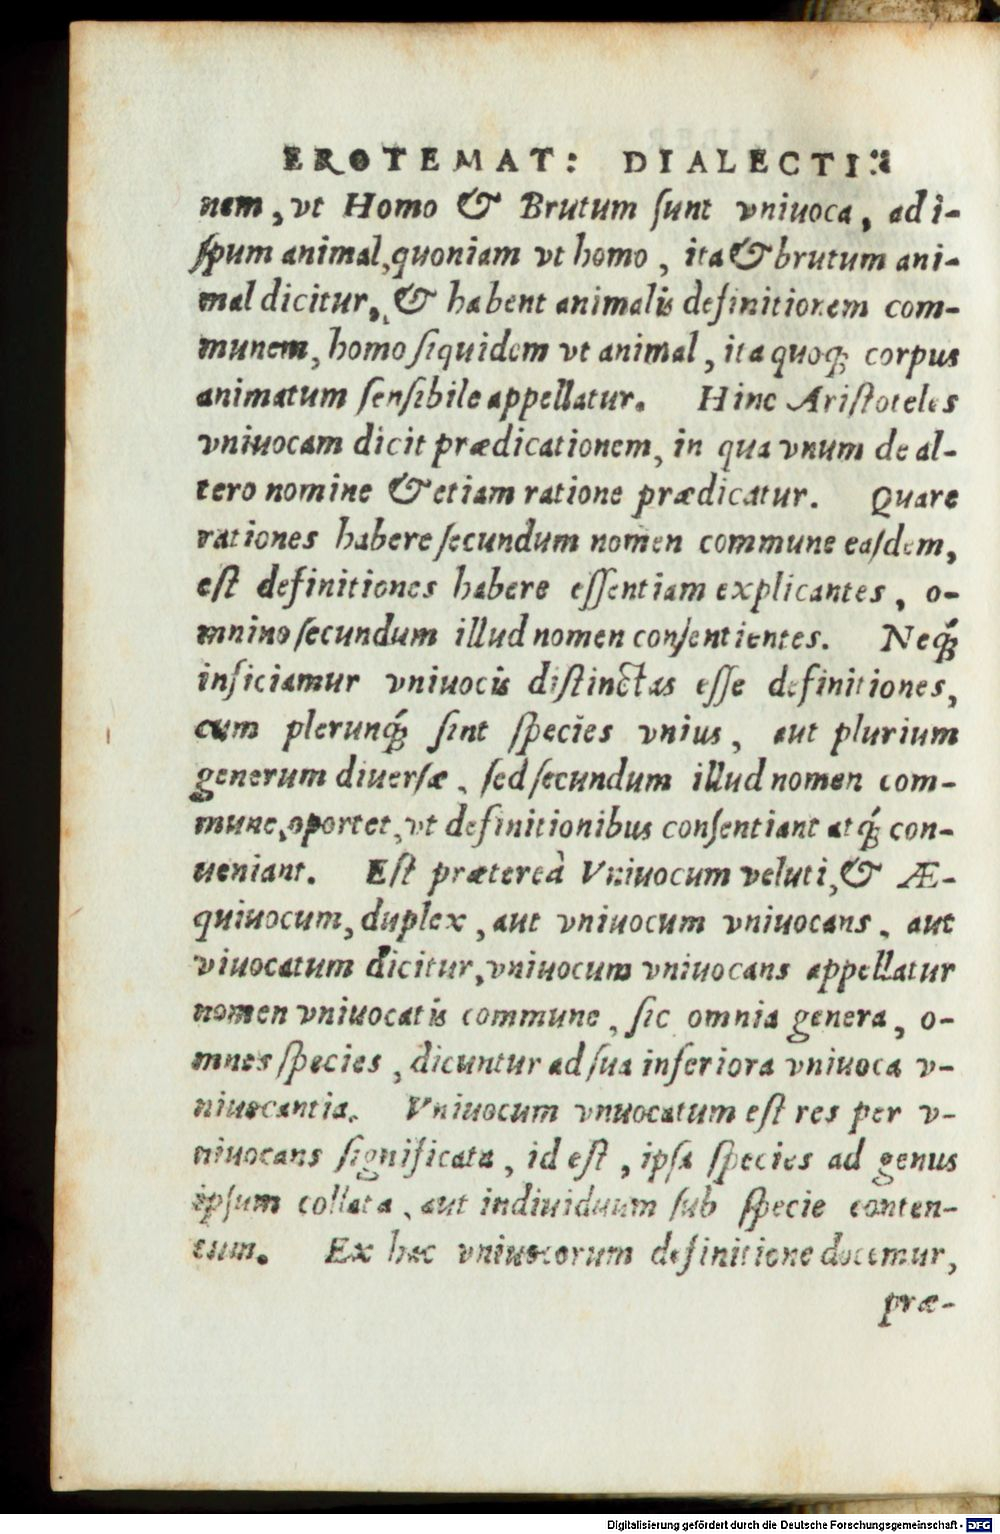 EROTEMAT: DIALECTI:
nem, vt Homo & Brutum ſunt vniuoca, ad i-
pſum animal, quoniam vt homo, ita & brutum ani-
mal dicitur, & habent animalis definitionem com-
munem, homo ſiquidem vt animal, ita quoq; corpus
animatum ſenſibile appellatur. Hinc Ariſtoteles
vniuocam dicit prædicationem, in qua vnum de al-
tero nomine & etiam ratione prædicatur. Quare
rationes habere ſecundum nomen commune eaſdem,
eſt definitiones habere eſſentiam explicantes, o-
mnino ſecundum illud nomen conſentientes. Neq́;
inficiamur vniuocis diſtinctas eſſe definitiones,
cum plerunq́; ſint ſpecies vnius, aut plurium
generum diuerſæ, ſed ſecundum illud nomen com-
mune, oportet, vt definitionibus conſentiant atq́; con-
ueniant. Eſt præterea Vniuocum veluti, & Æ-
quiuocum, duplex, aut vniuocum vniuocans, aut
viuocatum dicitur, vniuocum vniuocans appellatur
nomen vniuocatis commune, ſic omnia genera, o-
mnes ſpecies, dicuntur ad ſua inferiora vniuoca v-
niuocantia. Vniuocum vnuocatum eſt res per v-
niuocans ſignificata, id eſt, ipſa ſpecies ad genus
ipſum collata, aut indiuiduum ſub ſpecie conten-
tum. Ex hac vniuocorum definitione docemur,
præ-
Digitalisierung gefördert durch die Deutsche Forschungsgemeinschaft - DFG